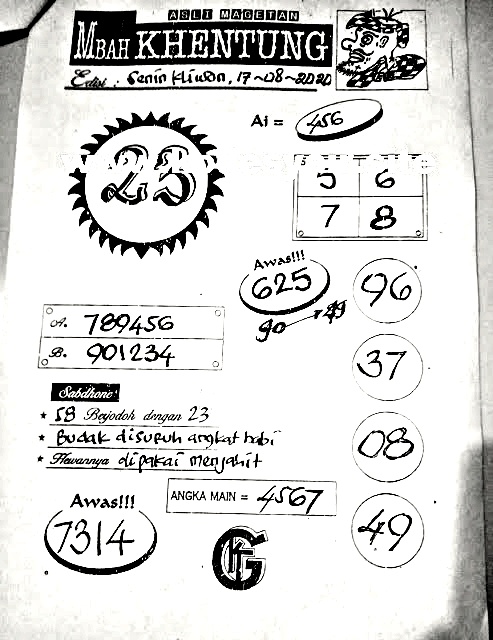 ASLI MAGETAN
MBAH KHENTUNG
Edisi : Senin Kliwon, 17~08~2020
AI = 456
23
5 6
7 8
Awas!!!
625
90 49
96
A. 789456
B. 901234
37
Sabdhono:
* 58 Berjodoh dengan 23
* Budak disuruh angkat babi
* Hewannya dipakai menjahit
08
ANGKA MAIN = 4567
Awas!!!
7314
49
KG